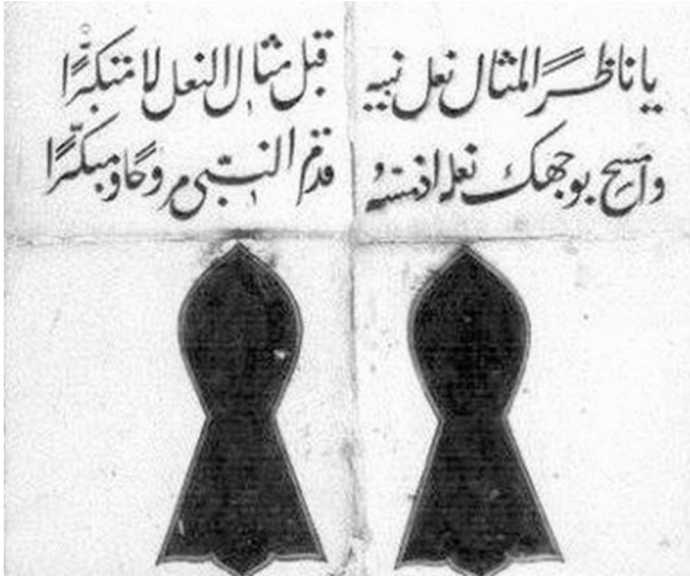 يا ناظرًا لمثال نعل نبيه قبل مثال النعل لا متكبرًا
وامسح بوجهك نعله اذ مسه قدم النبي مروحًا ومبكرًا